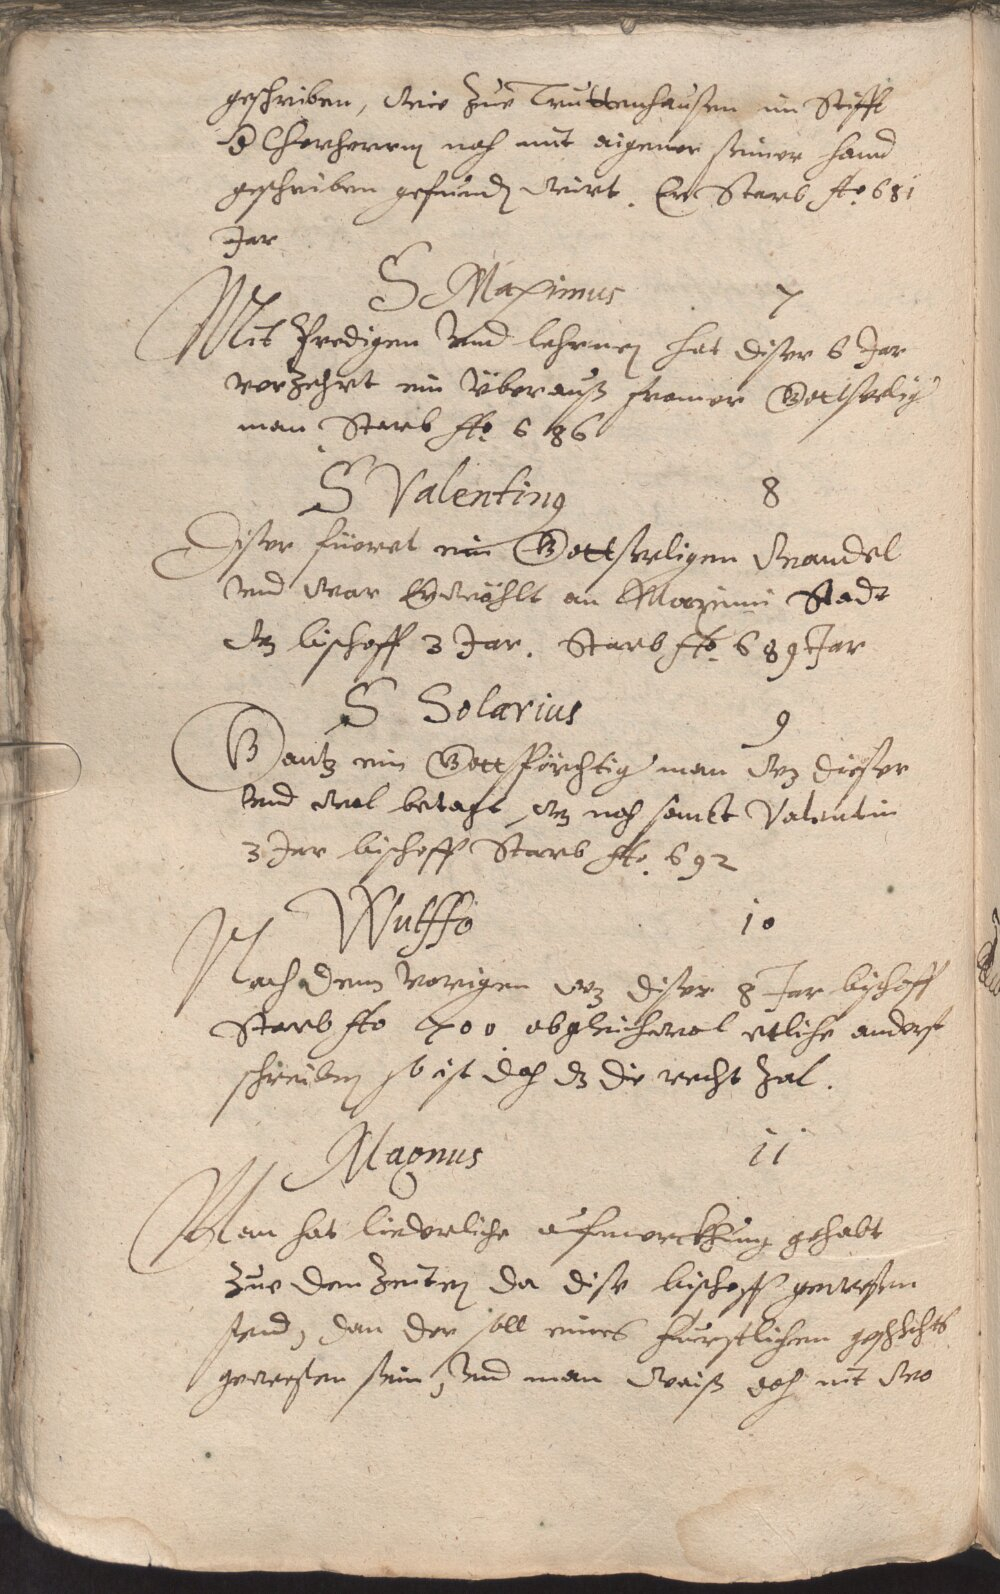 geschriben, wie zue Truttenhausen im Stifft
d Chorherren noch mit aigener seiner hannd
geschriben gefunden wirt. Er Starb Ao 681
Jar
S Maximus 7
Mit Predigen vnd lehrnen hat diser 6 Jar
verzehrt ein überauß fromer Gottselig
man Starb Ao 686
S Valentinus 8
Diser füeret ein Gottseligen Wandel
vnd war Erwöhlt an Maximi Stadt
wz bischoff 3 Jar. Starb Ao 689 Jar
S Solarius 9
Gantz ein Gottsförchtig man wz dieser
vnd wol betagt, wz noch sanct Valentin
3 Jar bischoff Starb Ao. 692
Wulffo 10
Nach dem vorigen wz diser 8 Jar bischoff
Starb Ao 700 obgleichwol etliche anderst
schreiben so ist doch dz die recht zal.
Magnus 11
Man hat liederliche aufmerckhung gehabt
zue den Zeiten da dise bischoff gewesen
send, dan der soll eines fürstlichen geschlechts
gewesen sein, vnd man waiß doch nit wo